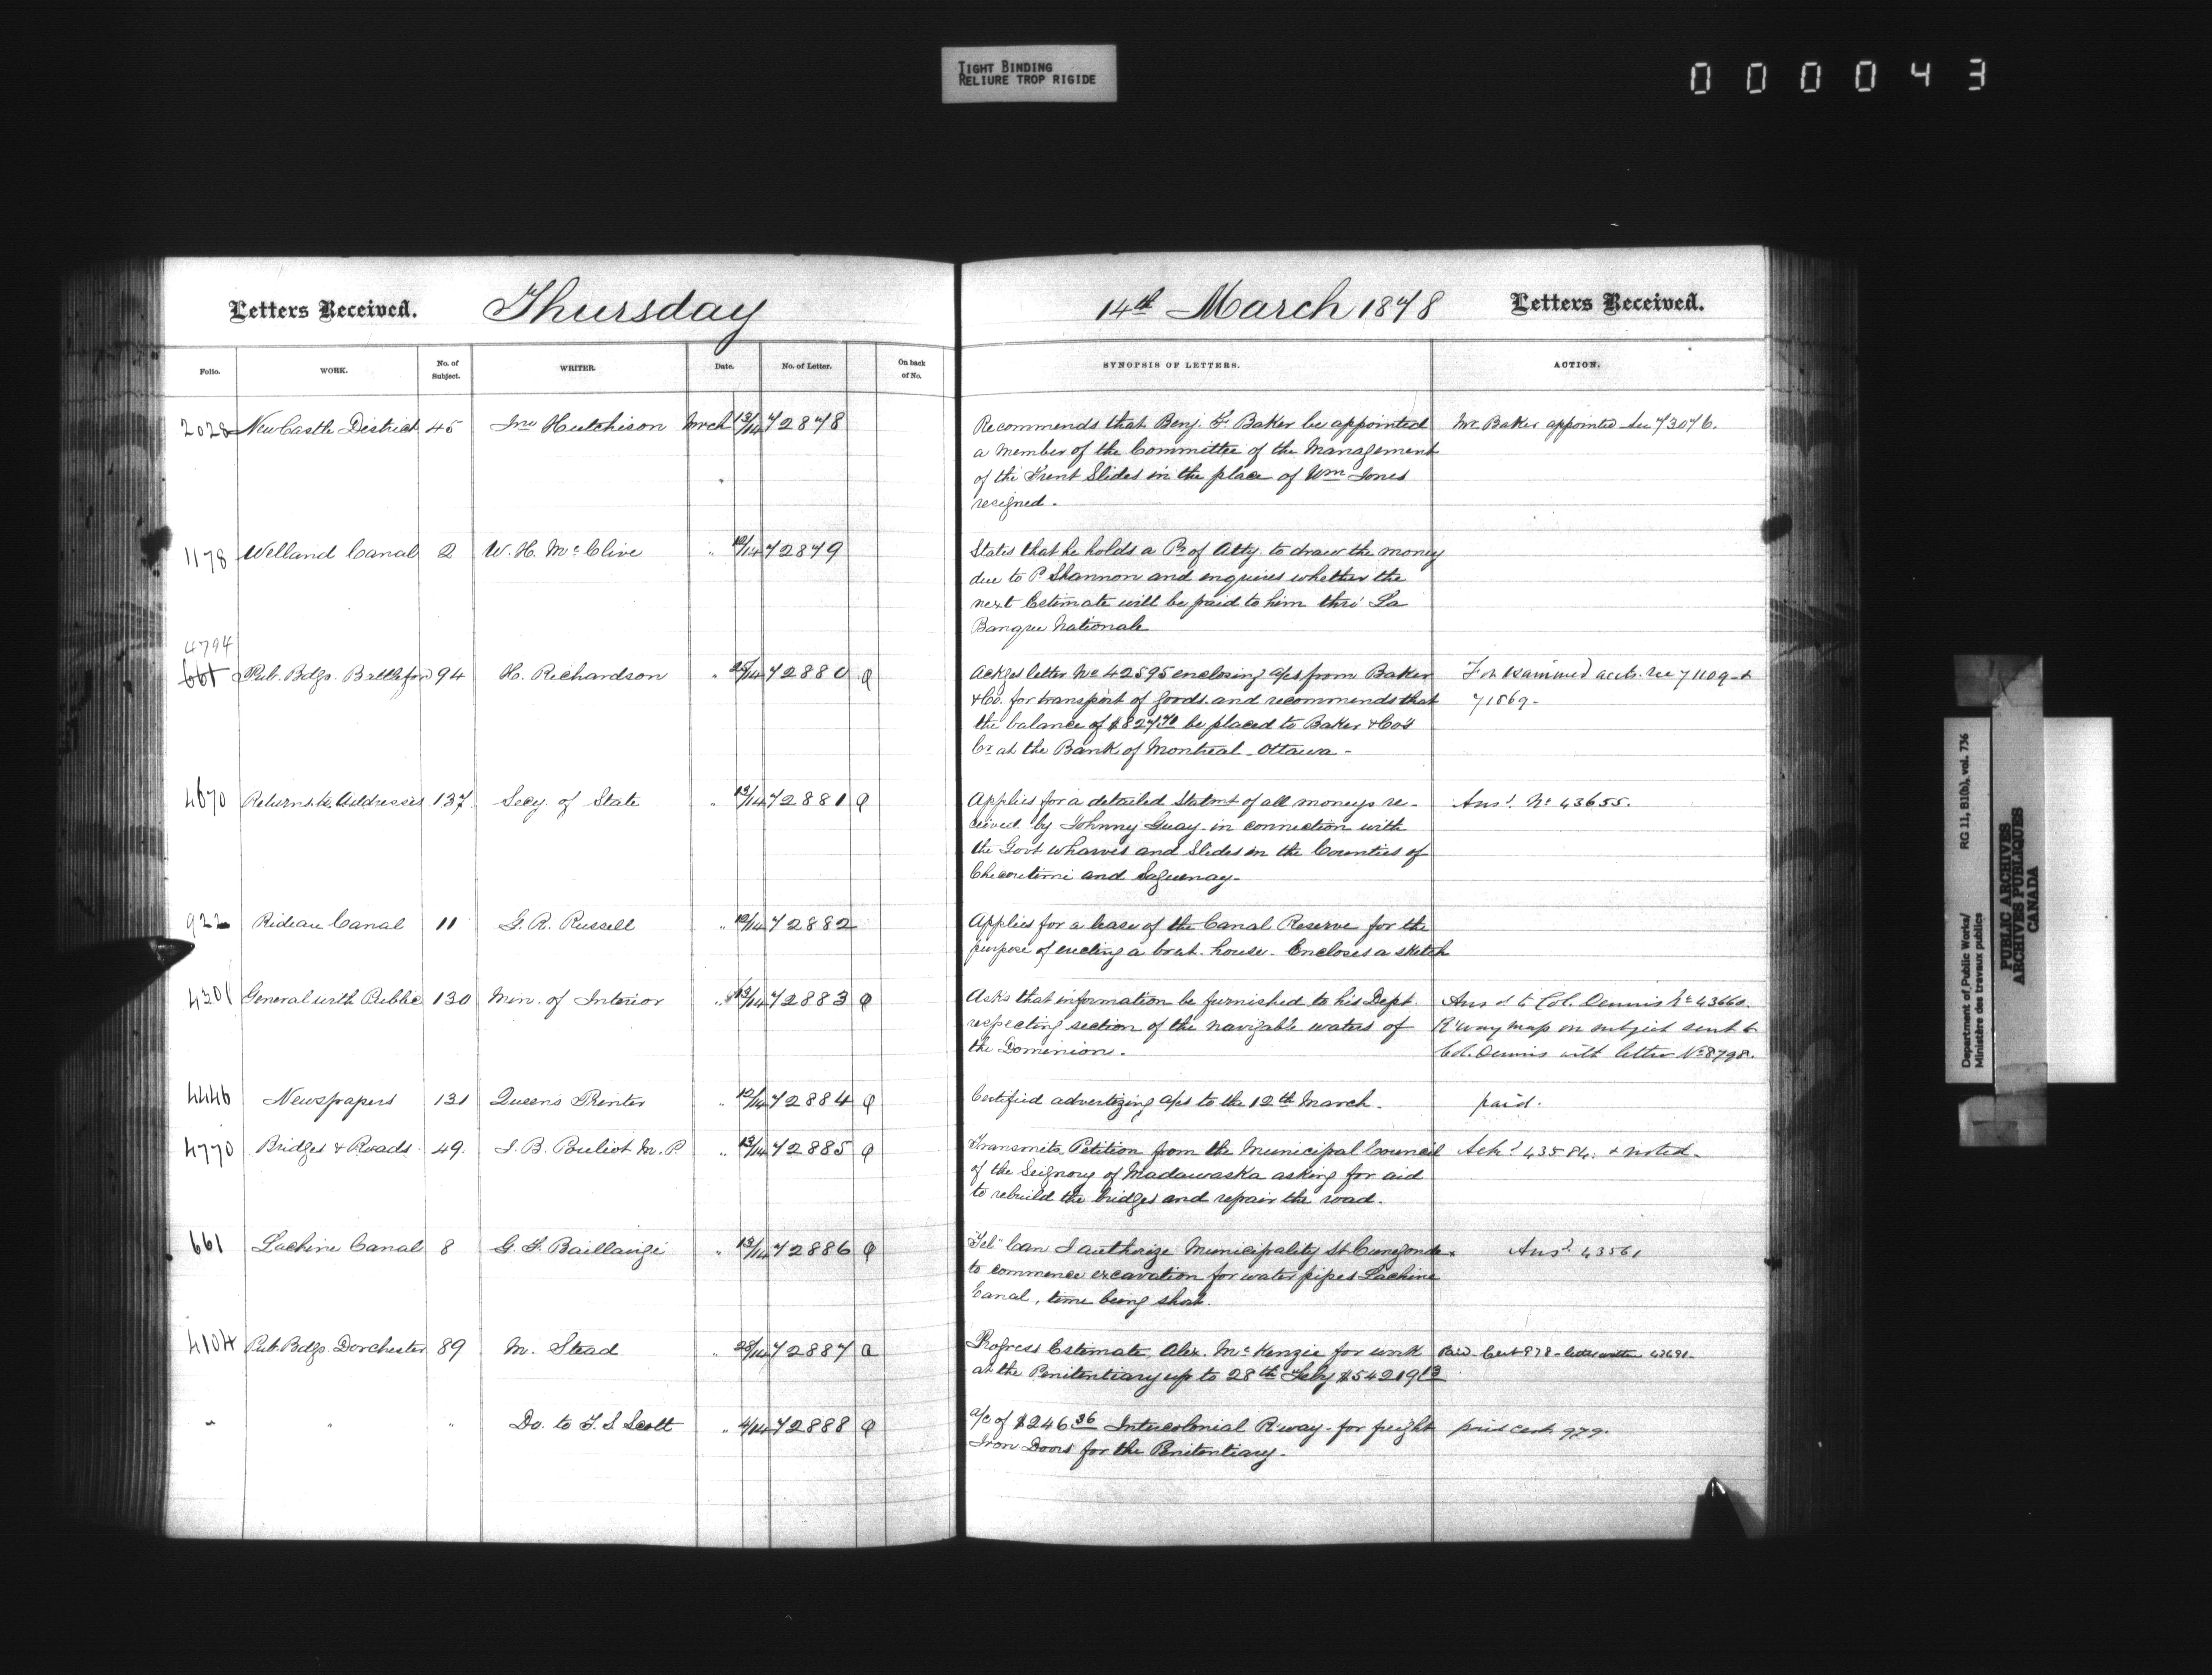 TIGHT BINDING
RELIURE TROP RIGIDE
000043
Letters Received. Thursday 14th March 1878 Letters Received.
Folio. WORK. No. of Subject. WRITER. Date. No. of Letter. On back of No. SYNOPSIS OF LETTERS. ACTION.
2028 NewCastle District 45 Jno Hutchison Mrch 13/14 72878 Recommends that Benj. F. Baker be appointed Mr Baker appointed See 73076.
a member of the Committee of the Management
of the Trent Slides in the place of Wm Jones
resigned.
1178 Welland Canal 2 W. H. McClive " 12/14 72879 States that he holds a Pr of Atty. to draw the money
due to P Shannon and enquires whether the
next Estimate will be paid to him thro' La
Banque Nationale
4794
661 Pub. Bdgs. Battleford 94 H. Richardson " /14 72880 Q Ackgs letter No 42595 enclosing a/cs from Baker For examined accts. see 71109 &
& Co. for transport of goods. and recommends that 71569.
the balance of $827 be placed to Baker & Co's
Cr at the Bank of Montreal Ottawa -
4670 Returns to Addresses 137 Secy. of State " 13/14 72881 Q Applies for a detailed Statmt of all moneys re- Ansd. No 43655.
ceived by Johnny Guay in connection with
the Govt wharves and Slides in the Counties of
Chicoutimi and Saguenay-
922 Rideau Canal 11 G. R. Russell " 12/14 72882 Applies for a lease of the Canal Reserve for the
purpose of erecting a boat house. Encloses a sketch
4301 General with Public 130 Min. of Interior " 13/14 72883 Q Asks that information be furnished to his Dept. Ansd to Col. Dennis No 43660.
respecting section of the navigable waters of R'way map on subject sent to
the Dominion. Col. Dennis with letter No 8798.
4446 Newspapers 131 Queen's Printer " 12/14 72884 Q Certified advertizing a/cs to the 12th March. paid.
4770 Bridges & Roads 49. J. B. Pouliot M. P. " 13/14 72885 Q Transmits Petition from the Municipal Council Ackd 43584. & noted-
of the Seignory of Madawaska asking for aid
to rebuild the bridges and repair the road.
661 Lachine Canal 8 G. F. Baillairgé " 13/14 72886 Q "Tel" Can I authorize Municipality St Cunegonde Ansd 43561
to commence excavation for water pipes Lachine
Canal, time being short.
4104 Pub. Bdgs. Dorchester 89 M. Stead " 28/14 72887 a Progress Estimate, Alex. McKenzie for work Paid Cert 978 - letter written
at the Penitentiary up to 28th Feby $54219 13
" " " Do. to T. S Scott " 4/14 72888 Q a/c of $246 36 Intercolonial R'way for freight paid cert 979.
Iron Doors for the Penitentiary.
Department of Public Works/ RG 11, B1(b), vol. 736
Ministère des travaux publics
PUBLIC ARCHIVES
ARCHIVES PUBLIQUES
CANADA